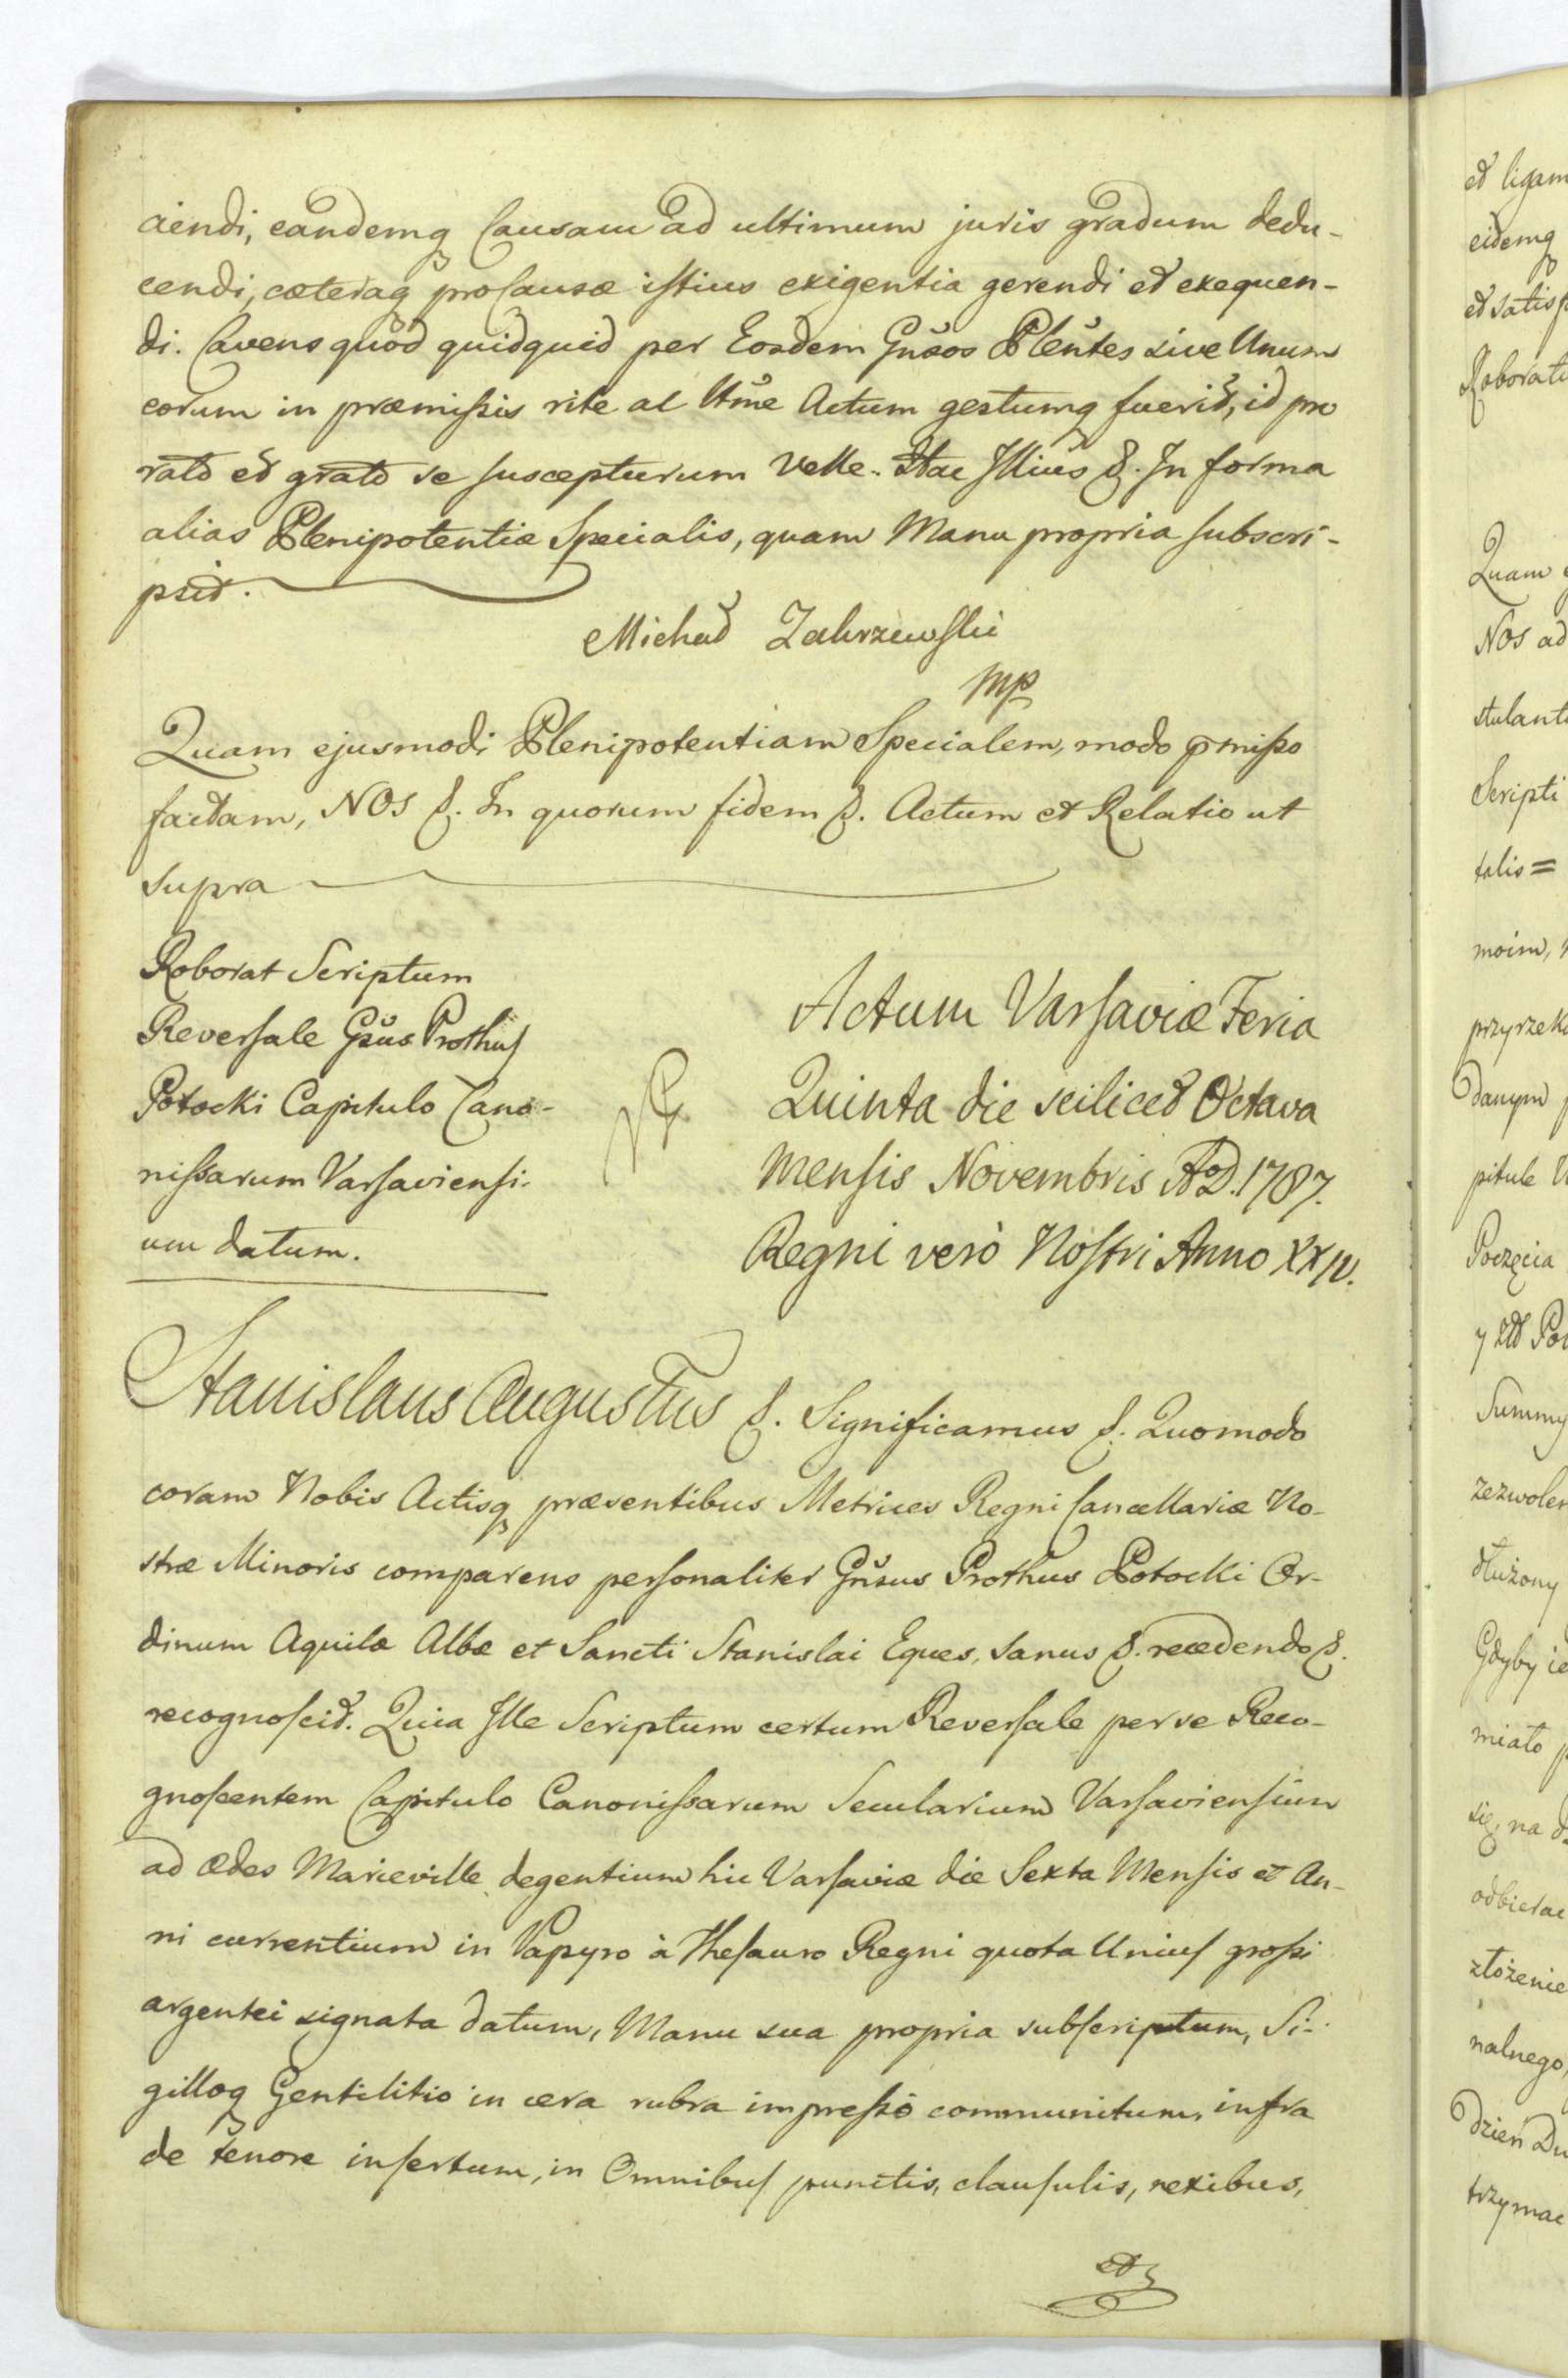 ciendi, eandemq Causam ad ultimum juris gradum dedu-
cendi, cæteraq pro Causæ istius exigentia gerendi et exequen-
di. Cavens quod quidquid per Eosdem Gnsos Plentes sive Unum
eorum in præmissis rite ac ltme Actum gestumq fuerit, id pro
rato et grato se suscepturum velle. Hac Illius &. In forma
alias Plenipotentiæ Specialis, quam Manu propria subscri-
psit.
Michał Zakrzewski
mp
Quam ejusmodi Plenipotentiam Specialem, modo pmisso
factam, NOS &. In quorum fidem &. Actum et Relatio ut
supra
Roborat Scriptum
Reversale Gsus Prothus
Potocki Capitulo Cano-
nissarum Varsaviensi-
um datum.
Actum Varsaviæ Feria
Quinta die scilicet Octava
Mensis Novembris AoD. 1787.
Regni verò Nostri Anno XXIV.
Stanislaus Augustus &. Significamus &. Quomodo
coram Nobis Actisq præsentibus Metrices Regni Cancellariæ No-
stræ Minoris comparens personaliter Gnsus Prothus Potocki Or-
dinum Aquilæ Albæ et Sancti Stanislai Eques, sanus &. recedendo &.
recognoscit. Quia Ille Scriptum certum Reversale per se Reco-
gnoscentem Capitulo Canonissarum Secularium Varsaviensium
ad Ædes Marieville degentium hic Varsaviæ die Sexta Mensis et An-
ni currentium in Papyro à Thesauro Regni quota Unius grossi
argentei signata datum, Manu sua propria subscriptum, Si-
gilloq Gentilitio in cera rubra impresso communitum, infra
de tenore insertum, in Omnibus punctis, clausulis, nexibus,
et
et ligam
eidemq
et satisf
Roborati
Quam
NOS ad
stulant
Scripti
talis =
moim,
przyrzek
danym
pitule
Poczęcia
y
Summy
zezwolen
dłużony
Gdyby ie
miało
się, na
odbierac
złożenie
nalnego,
Dzień Du
trzymac